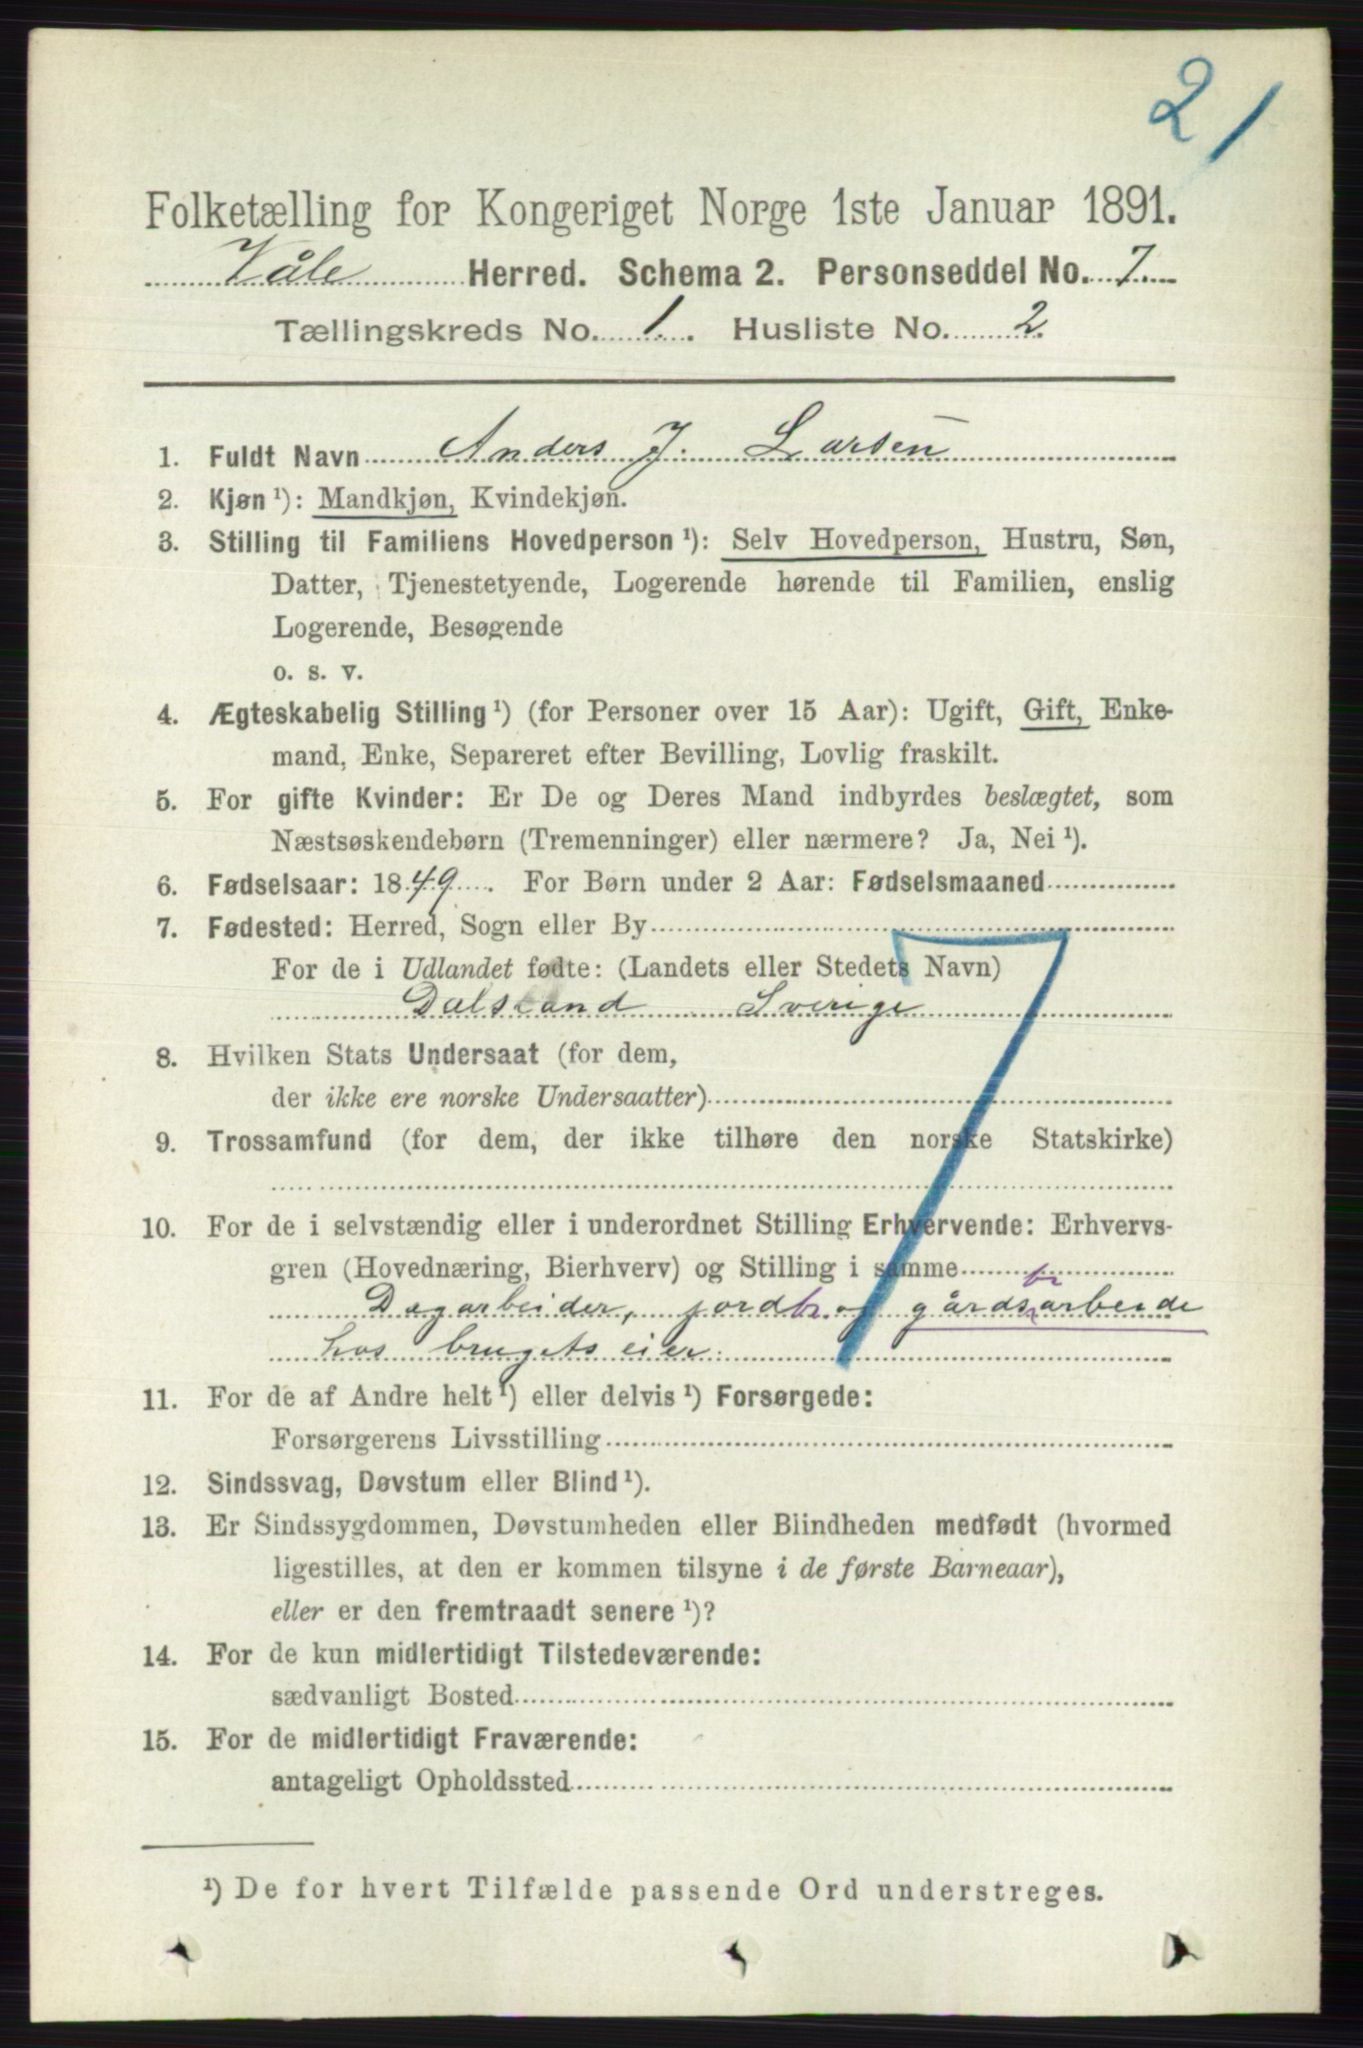 21
Folketælling for Kongeriget Norge 1ste Januar 1891.
Våle Herred. Schema 2. Personseddel No. 7
Tællingskreds No. 1. Husliste No. 2.
1. Fuldt Navn Anders J. Larsen
2. Kjøn ¹): Mandkjøn, Kvindekjøn.
3. Stilling til Familiens Hovedperson ¹): Selv Hovedperson, Hustru, Søn,
Datter, Tjenestetyende, Logerende hørende til Familien, enslig
Logerende, Besøgende
o. s. v.
4. Ægteskabelig Stilling ¹) (for Personer over 15 Aar): Ugift, Gift, Enke-
mand, Enke, Separeret efter Bevilling, Lovlig fraskilt.
5. For gifte Kvinder: Er De og Deres Mand indbyrdes beslægtet, som
Næstsøskendebørn (Tremenninger) eller nærmere? Ja, Nei ¹).
6. Fødselsaar: 1849. For Børn under 2 Aar: Fødselsmaaned
7. Fødested: Herred, Sogn eller By
For de i Udlandet fødte: (Landets eller Stedets Navn)
Dalsland Sverige
8. Hvilken Stats Undersaat (for dem,
der ikke ere norske Undersaatter)
9. Trossamfund (for dem, der ikke tilhøre den norske Statskirke)
10. For de i selvstændig eller i underordnet Stilling Erhvervende: Erhvervs-
gren (Hovednæring, Bierhverv) og Stilling i samme
br
Dagarbeider, jordbr. og gårdsarbeide
hos brugets eier.
11. For de af Andre helt ¹) eller delvis ¹) Forsørgede:
Forsørgerens Livsstilling
12. Sindssvag, Døvstum eller Blind ¹).
13. Er Sindssygdommen, Døvstumheden eller Blindheden medfødt (hvormed
ligestilles, at den er kommen tilsyne i de første Barneaar),
eller er den fremtraadt senere ¹)?
14. For de kun midlertidigt Tilstedeværende:
sædvanligt Bosted
15. For de midlertidigt Fraværende:
antageligt Opholdssted
¹) De for hvert Tilfælde passende Ord understreges.
7